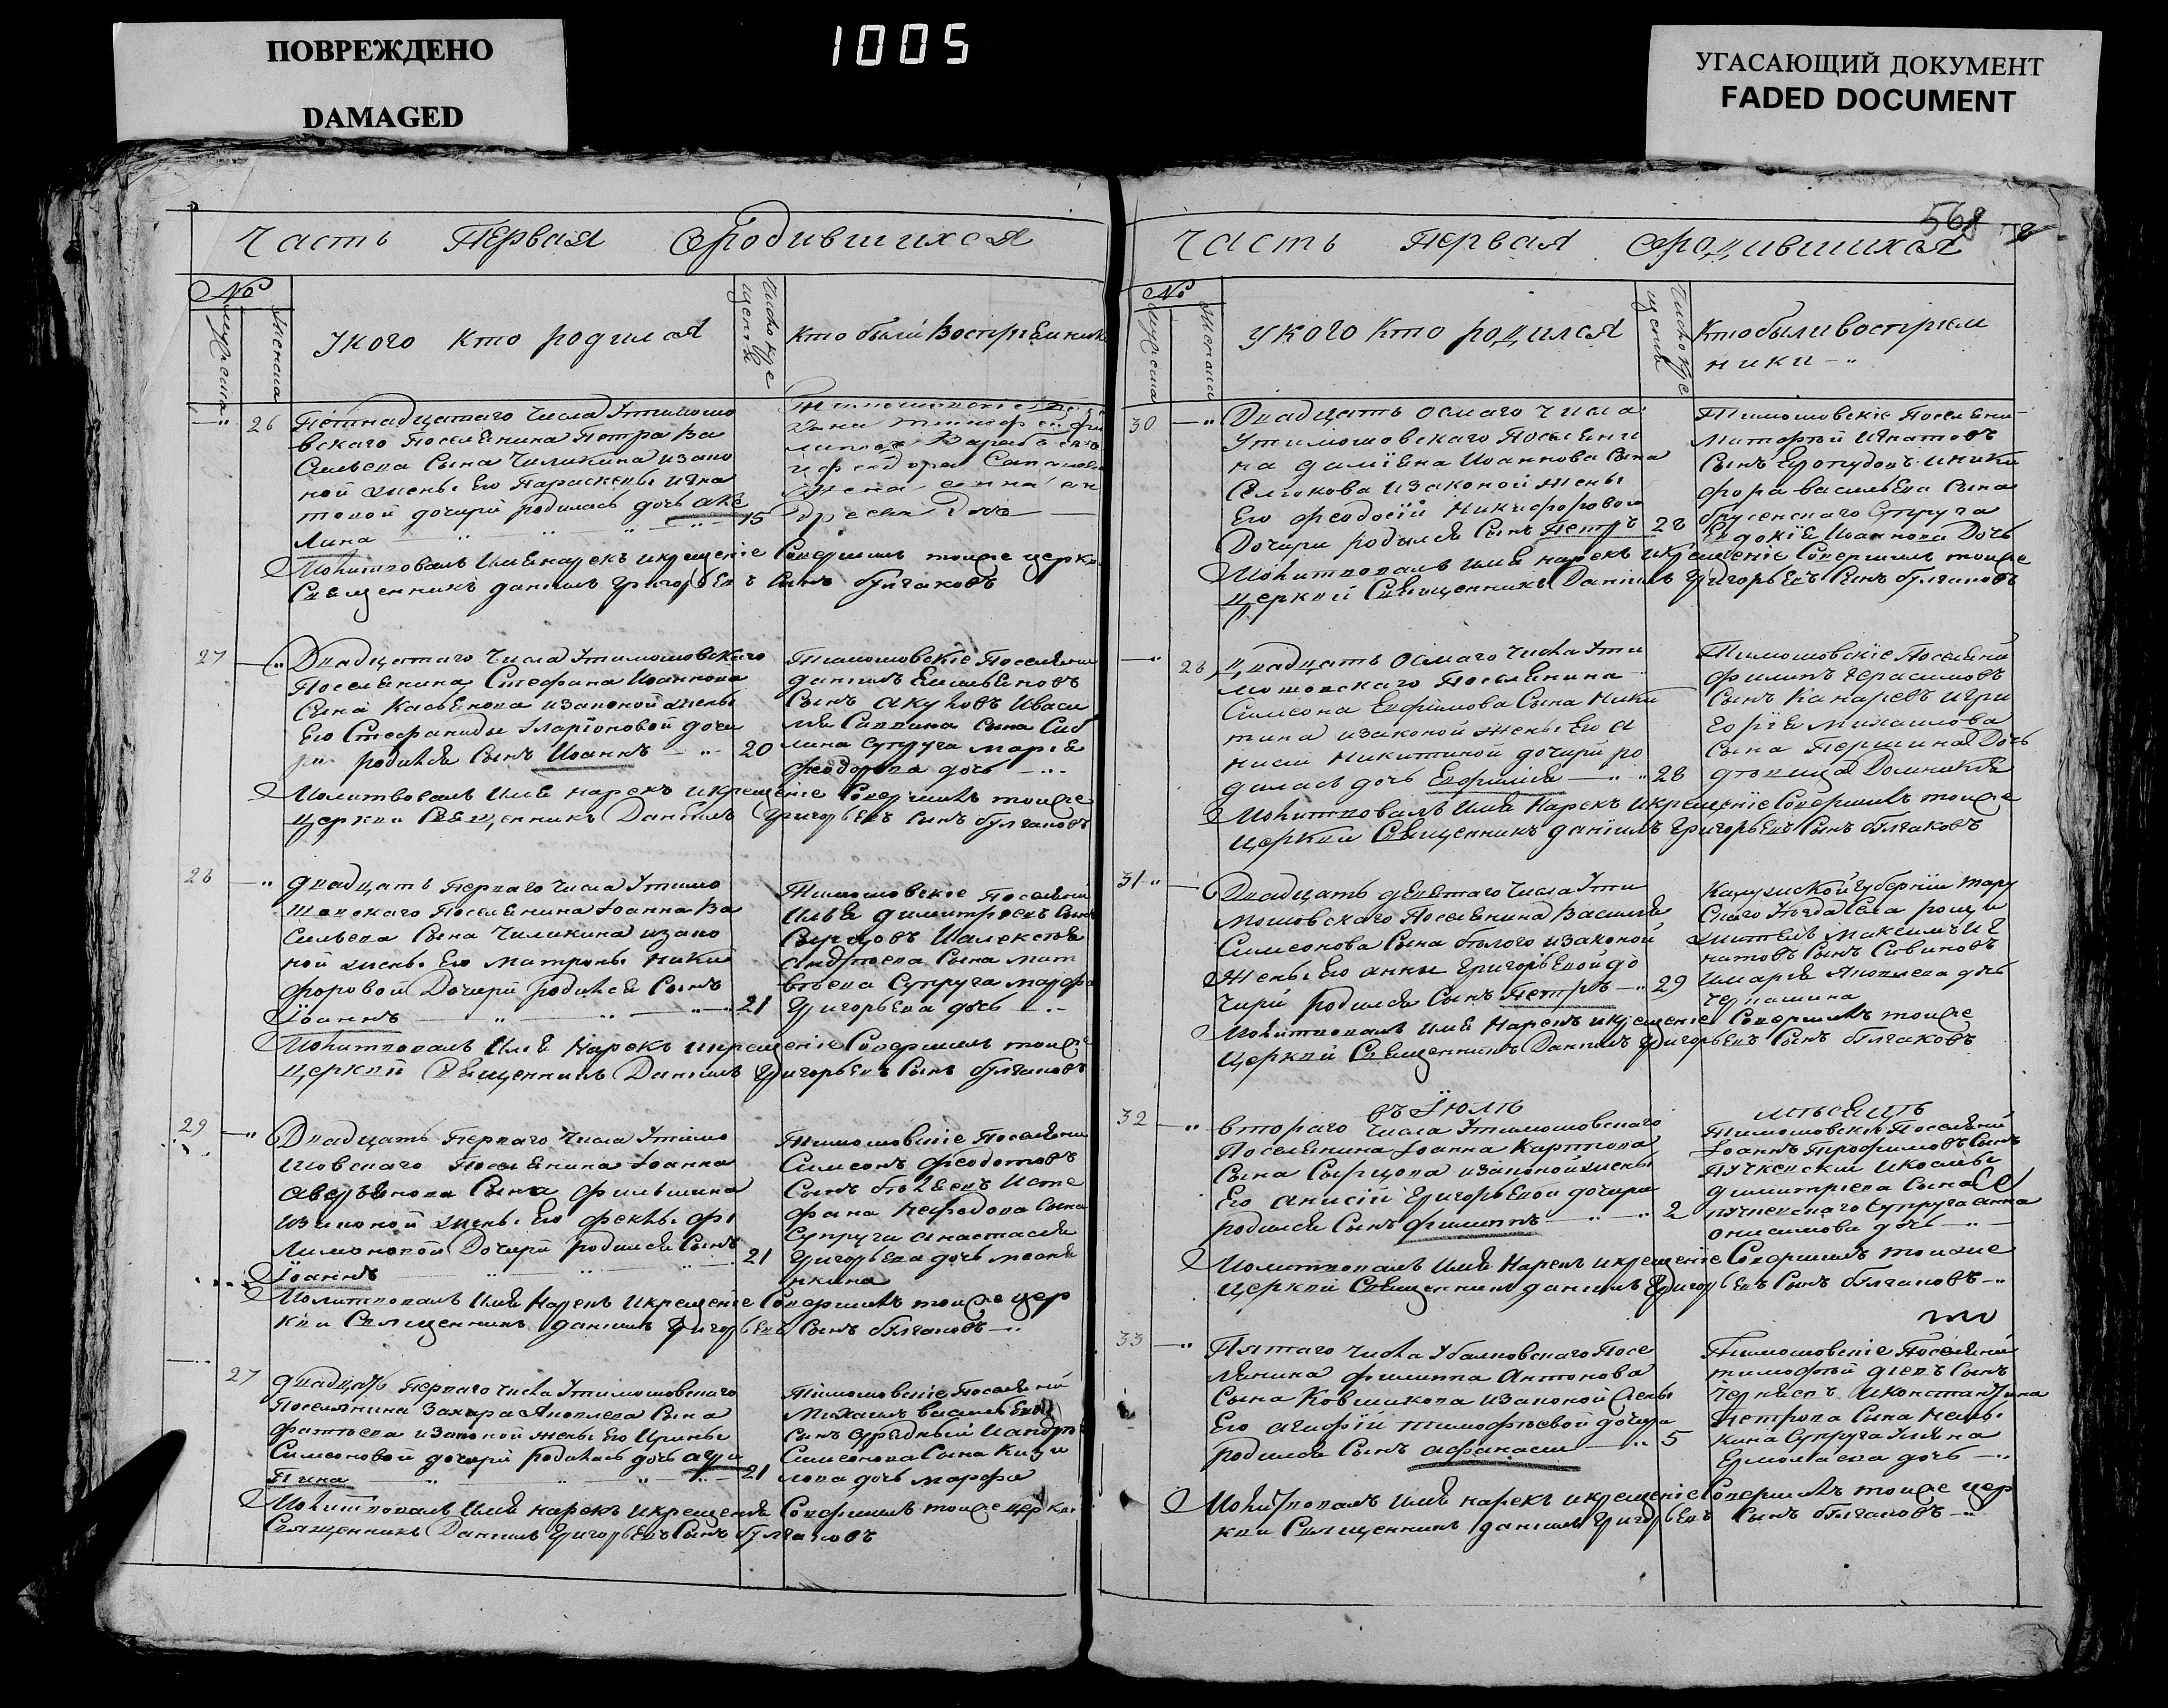 ПОВРЕЖДЕНО
DAMAGED
1005
УГАСАЮЩИЙ ДОКУМЕНТ
FADED DOCUMENT
Часть Первая Ородившихся
№
мужеска
женска
Укого кто родился
Число кре
щенія
кто были Восприемник
26
Петнадцатаго Числа Утимошо
вскаго Поселянина Петра Ва
Сильева Сына Чиликина изако
ной жены Его Параскевы Игна
товой дочери родилась дочь Аку
лина
15
Молитвовалъ Имя нарекъ икрещеніе Совершилъ тойже церкви
Священникъ даніилъ Григорьевъ Сынъ булгаковъ
27
Двадцатаго Числа Утимошовскаго
Поселянина Стефана Иоаннова
Сына Касьянова изаконой жены
Его Стефаниды Іларіоновой доче
ри родился Сынъ Иоаннъ
20
Тимошовскіе Поселяни
даніилъ Емельяновъ
Сынъ Акуловъ Иваси
лия Саввина Сына
супруга Марія
Феодорова дочь
Молитвовалъ Имя нарекъ икрещеніе Совершилъ тойже
церкви Священникъ Даніилъ Григорьевъ сынъ булгаковъ
28
двадцать Перваго Числа Утимо
Шовскаго Поселянина Іоанна Ва
Сильева Сына Чиликина изако
ной жены Его Матроны Ники
форовой Дочери родился Сынъ
Іоаннъ
21
Тимошовскіе Поселяни
Илья димитріевъ Сынъ
Сырцовъ Иалексея
Андреева Сына Мат
веева Супруга Марфа
Григорьева дочь
Молитвовалъ Имя Нарекъ икрещеніе Совершилъ тойже
церкви Священникъ Даніилъ Григорьевъ Сынъ булгаковъ
29
Двадцать Перваго Числа Утимо
Шовскаго Поселянина Іоанна
Аверьянова Сына Фильшина
изаконой жены Его Феклы Фи
Лимоновой Дочери родился Сынъ
Іоаннъ
21
Тимошовскіе Поселяни
Симеонъ Феодотовъ
Сынъ Беляевъ Исте
фана Нефедова Сына
Супруга Анастасия
Григорьева дочь
Молитвовалъ Имя Нарекъ Икрещеніе Совершилъ тойже цер
кви Священникъ даніилъ Григорьевъ Сынъ булгаковъ
27
двадцать Перваго Числа Утимошовскаго
Поселянина Захара Яковлева Сына
Фатеева изаконой жены Его Ирины
Симеоновой дочери родилась дочь Агри
Пина
21
Тимошовскіе Поселяни
Михаилъ Васильевъ
сынъ Иандрея
Симеонова Сына
дочь Марфа
Молитвовалъ Имя нарекъ икрещеніе Совершилъ тойже церкви
Священникъ Даніилъ Григорьевъ Сынъ булгаковъ
568
Часть первая Ородившихся
№
мужеска
женска
Укого кто родился
Число кре
щенія
Ктобыливосприем
ники
30
Двадцать осмаго Числа
Утимошовскаго Поселяни
на даміяна Иоаннова Сына
Селюкова изаконой жены
Его Феодосіи Никифоровою
Дочери родился Сынъ Петръ
28
Тимошовскіе Поселяни
Матфей Игнатовъ
Сынъ Иники
фора Васильева Сына
Супруга
Евдокія Иоаннова Дочь
Молитвовалъ имя нарекъ икрещеніе Совершилъ тойже
Церкви Священникъ Даніилъ Григорьевъ Сынъ булгаковъ
28
двадцать Осмаго Числа Ути
мошовскаго Поселянина
Симеона Евфимова Сына Ники
тина изаконой жены Его А
нисіи Никитиной дочери ро
дилась дочь Евфимія
28
Тимошовскіе Поселяни
филипъ Герасимовъ
Сынъ Канаревъ Игри
горія Михаилова
Сына Першина Дочь
девица Домникія
Молитвовалъ Имя Нарекъ Икрещеніе Совершилъ тойже
Церкви Священникъ даніилъ Григорьевъ Сынъ булгаковъ
31
Двадцать девятаго Числа Ути
мошовскаго Поселянина Василия
Симеонова Сына Белого изаконой
жены Его Анны Григорьевой до
чири родился Сынъ Петръ
29
Калужской Губерніи Тару
Скаго Уезда Села рощи
житель Максимъ Иг
натовъ Сынъ Савиновъ
Имарія Яковлева дочь
Молитвовалъ имя Нарекъ икрещеніе Совершилъ тойже
Церкви Священникъ Даніилъ Григорьевъ Сынъ булгаковъ
въ Іюлъ месяцъ
32
втораго Числа Утимошовскаго
Поселянина Іоанна Карпова
Сына Сырцова изаконой жены
Его Анисіи Григорьевой дочири
родился Сынъ Филиппъ
2
Тимошовскіе Поселяни
Іоаннъ Трофимовъ Сынъ
димитріева Сына
Супруга Анна
онисимова дочь
Молитвовалъ Имя Нарекъ икрещеніе Совершилъ тойже
Церкви Священникъ даніилъ Григорьевъ Сынъ булгаковъ
33
Пятаго Числа Поселя
лянина Филиппа Антонова
Сына Ковшикова изаконой жены
Его Агафіи тимофеевой дочири
родился Сынъ Афанасіи
5
Тимошовскіе Поселяни
тимофей Сынъ
Черняевъ Иконстантина
Петрова Сына
Супруга Ульяна
Ермолаева дочь
Молитвовалъ имя нарекъ икрещеніе Совершилъ тойже цер
кви Священникъ даніилъ Григорьевъ Сынъ булгаковъ